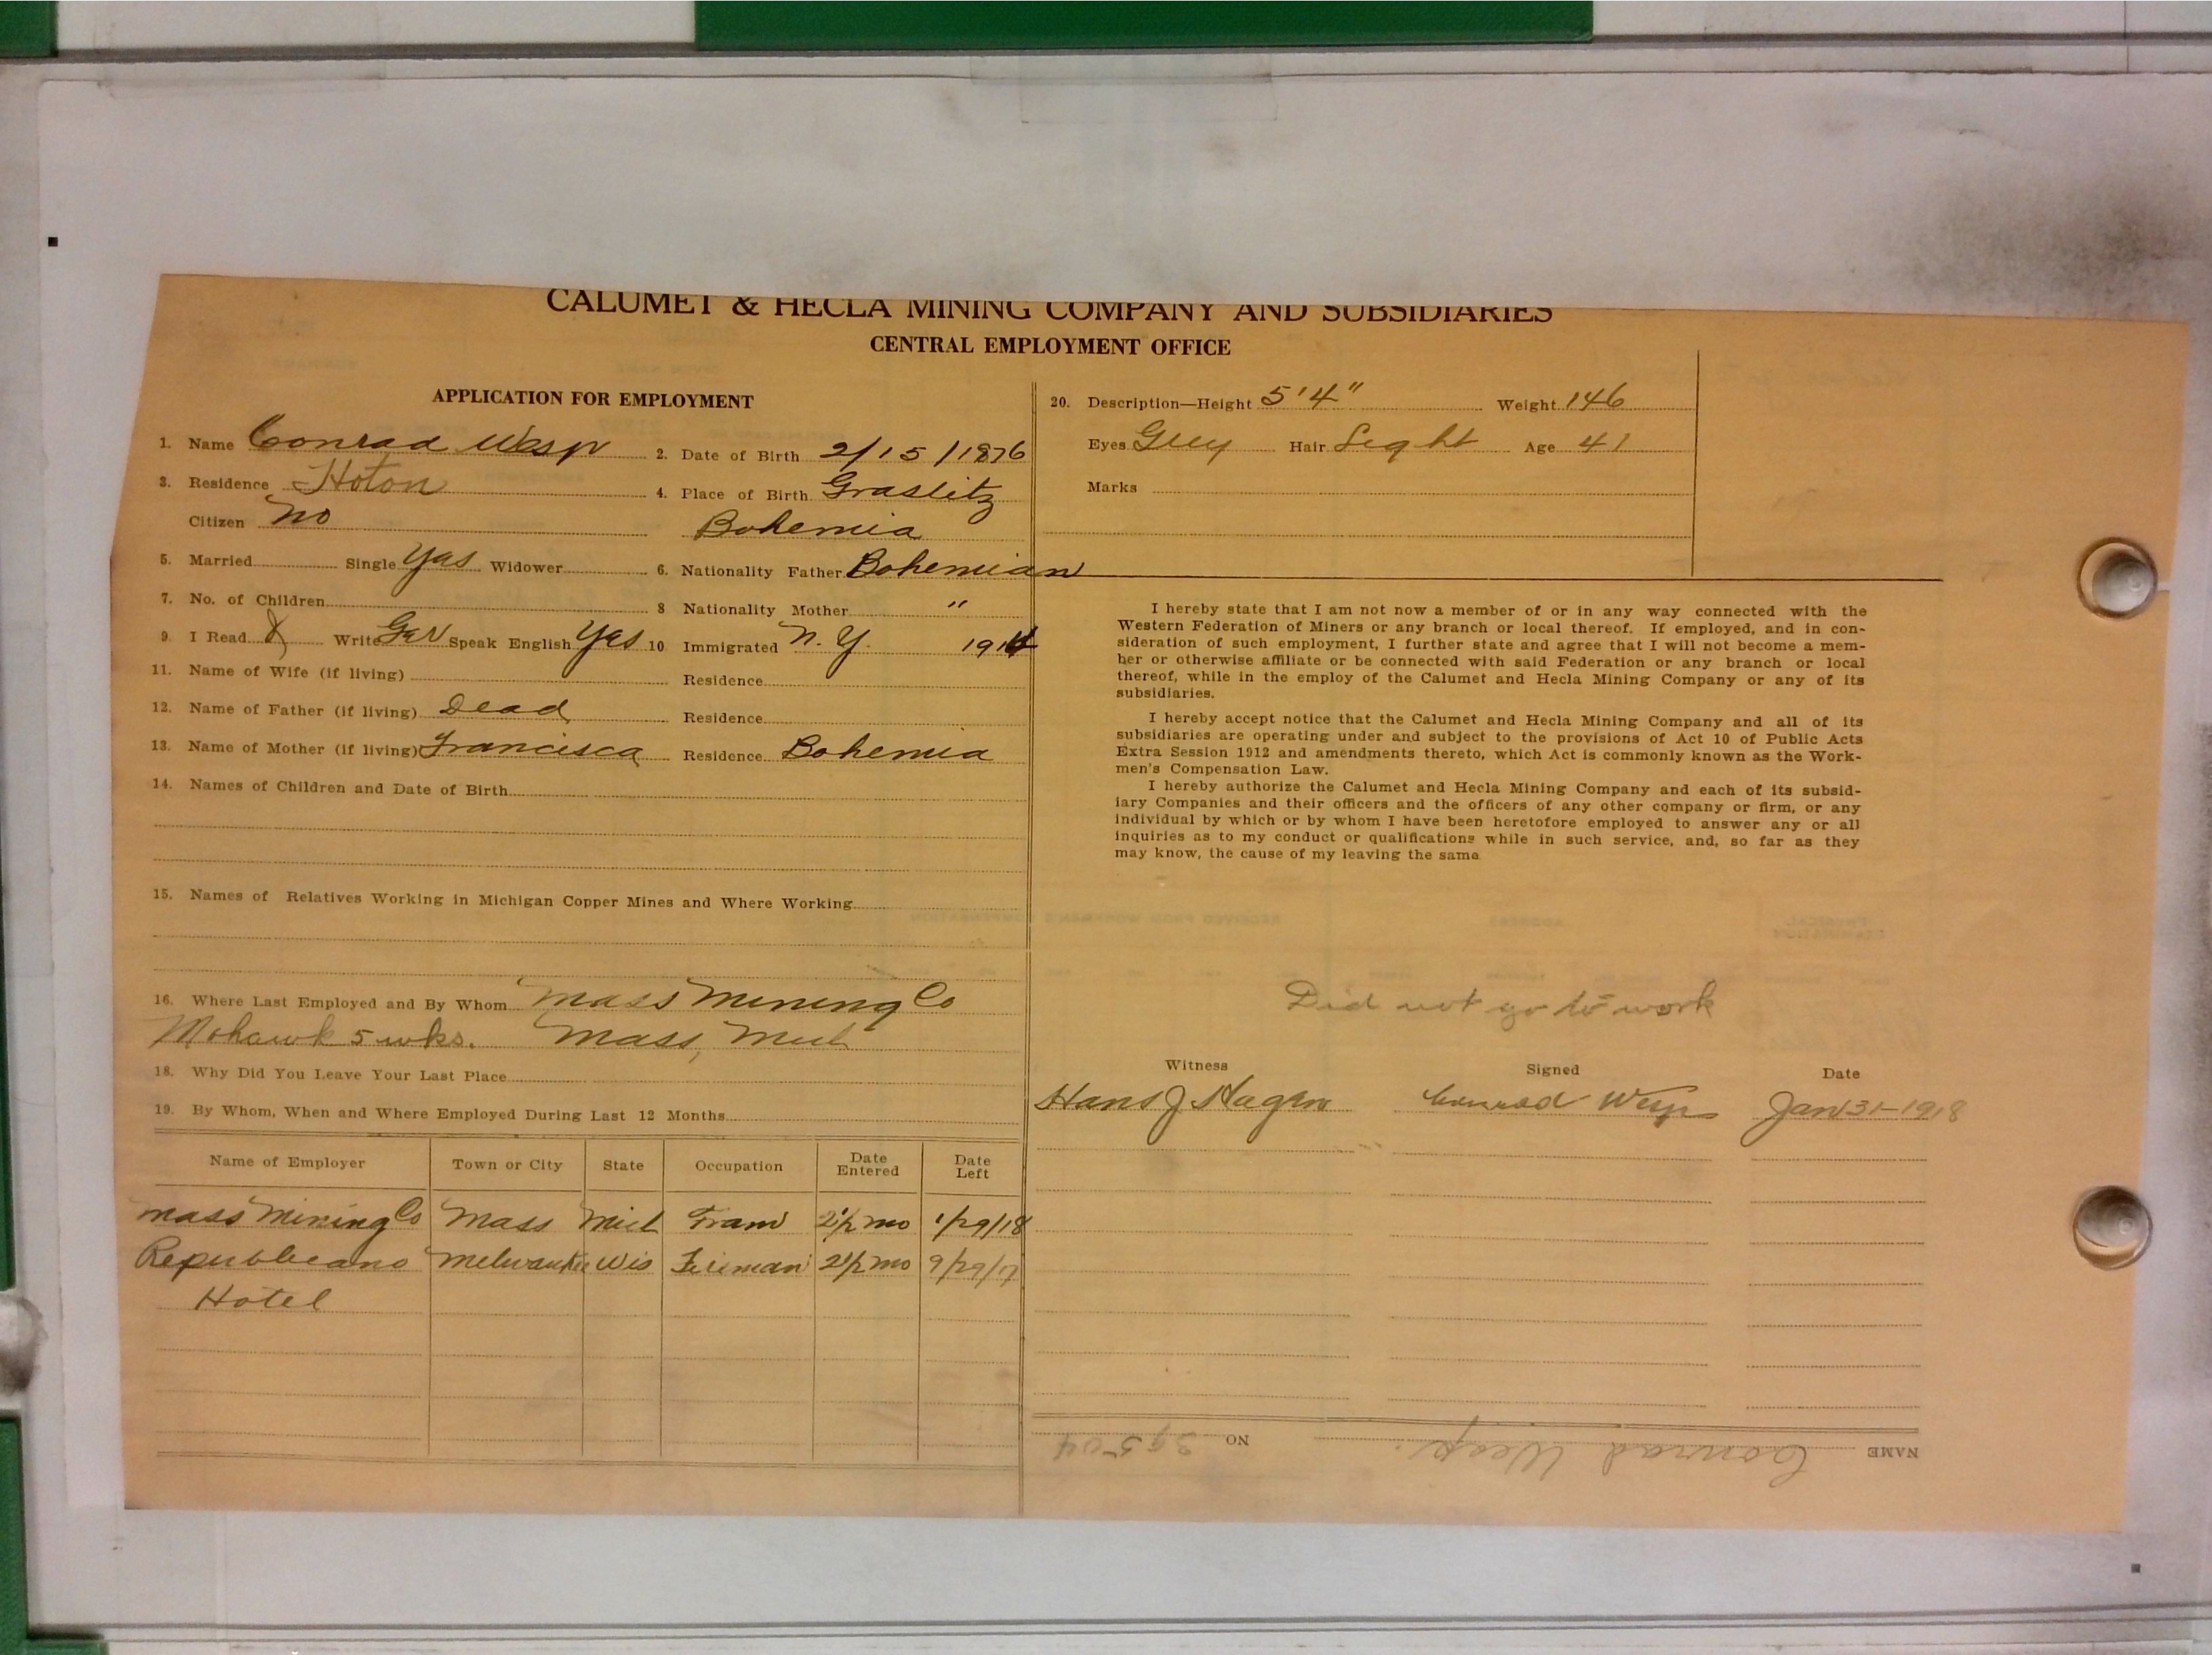 CALUMET & HECLA MINING COMPANY AND SUBSIDIARIES
CENTRAL EMPLOYMENT OFFICE
APPLICATION FOR EMPLOYMENT
1. Name Conrad Wesp 2. Date of Birth 2/15/1876
3. Residence Hoton 4. Place of Birth Graslitz
Citizen No Bohemia
5. Married Single Yas Widower 6. Nationality Father Bohemian
7. No. of Children 8 Nationality Mother "
9. I Read & Write Ger Speak English Yes 10 Immigrated N.Y. 1914
11. Name of Wife (if living) Residence
12. Name of Father (if living) Dead Residence
13. Name of Mother (if living) Francisca Residence Bohemia
14. Names of Children and Date of Birth
15. Names of Relatives Working in Michigan Copper Mines and Where Working
16. Where Last Employed and By Whom Mass Mining Co
Mohawk 5 wks. Mass, Mich
18. Why Did You Leave Your Last Place
19. By Whom, When and Where Employed During Last 12 Months
Name of Employer Town or City State Occupation Date Entered Date Left
Mass Mining Co Mass Mich Tram 2 1/2 mo 1/29/18
Republicano Melwaukee Wis Fireman 2 1/2 mo 9/29/17
Hotel
20. Description—Height 5'4" Weight 146
Eyes Grey Hair Light Age 41
Marks
I hereby state that I am not now a member of or in any way connected with the
Western Federation of Miners or any branch or local thereof. If employed, and in con-
sideration of such employment, I further state and agree that I will not become a mem-
ber or otherwise affiliate or be connected with said Federation or any branch or local
thereof, while in the employ of the Calumet and Hecla Mining Company or any of its
subsidiaries.
I hereby accept notice that the Calumet and Hecla Mining Company and all of its
subsidiaries are operating under and subject to the provisions of Act 10 of Public Acts
Extra Session 1912 and amendments thereto, which Act is commonly known as the Work-
men's Compensation Law.
I hereby authorize the Calumet and Hecla Mining Company and each of its subsid-
iary Companies and their officers and the officers of any other company or firm, or any
individual by which or by whom I have been heretofore employed to answer any or all
inquiries as to my conduct or qualifications while in such service, and, so far as they
may know, the cause of my leaving the same
Did not go to work
Witness Signed Date
Hans J Hagen Conrad Wesp Jan 31-1918
NAME Conrad Wesp. NO